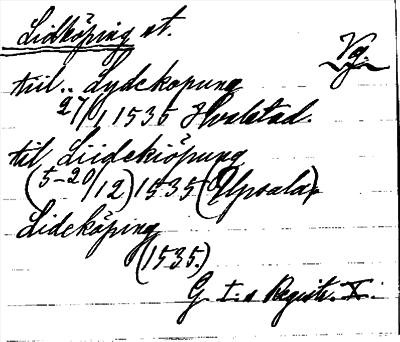 Lidköping st.
Vg.
tiil.. Lydekopung
27/1 1535 Hvalstad.
til Liidekiöpung
(5-20/12) 1535 (Upsala)
Lideköping
(1535.)
G. I:s Registr. X.